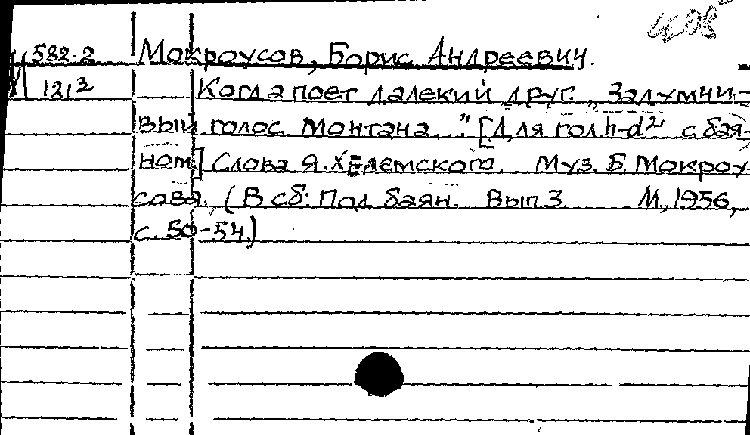 582-2 Мокроусов, Борис Андреевич.
1213 Когда поет далекий друг. „Задумчи-
вый голос Монтана..." [Для гол. h-d² с бая-
ном.] Слова Я. Хелемского. Муз. Б. Мокроу-
сова. (В сб: Под баян. Вып. 3. М., 1956,
с. 50-54.)